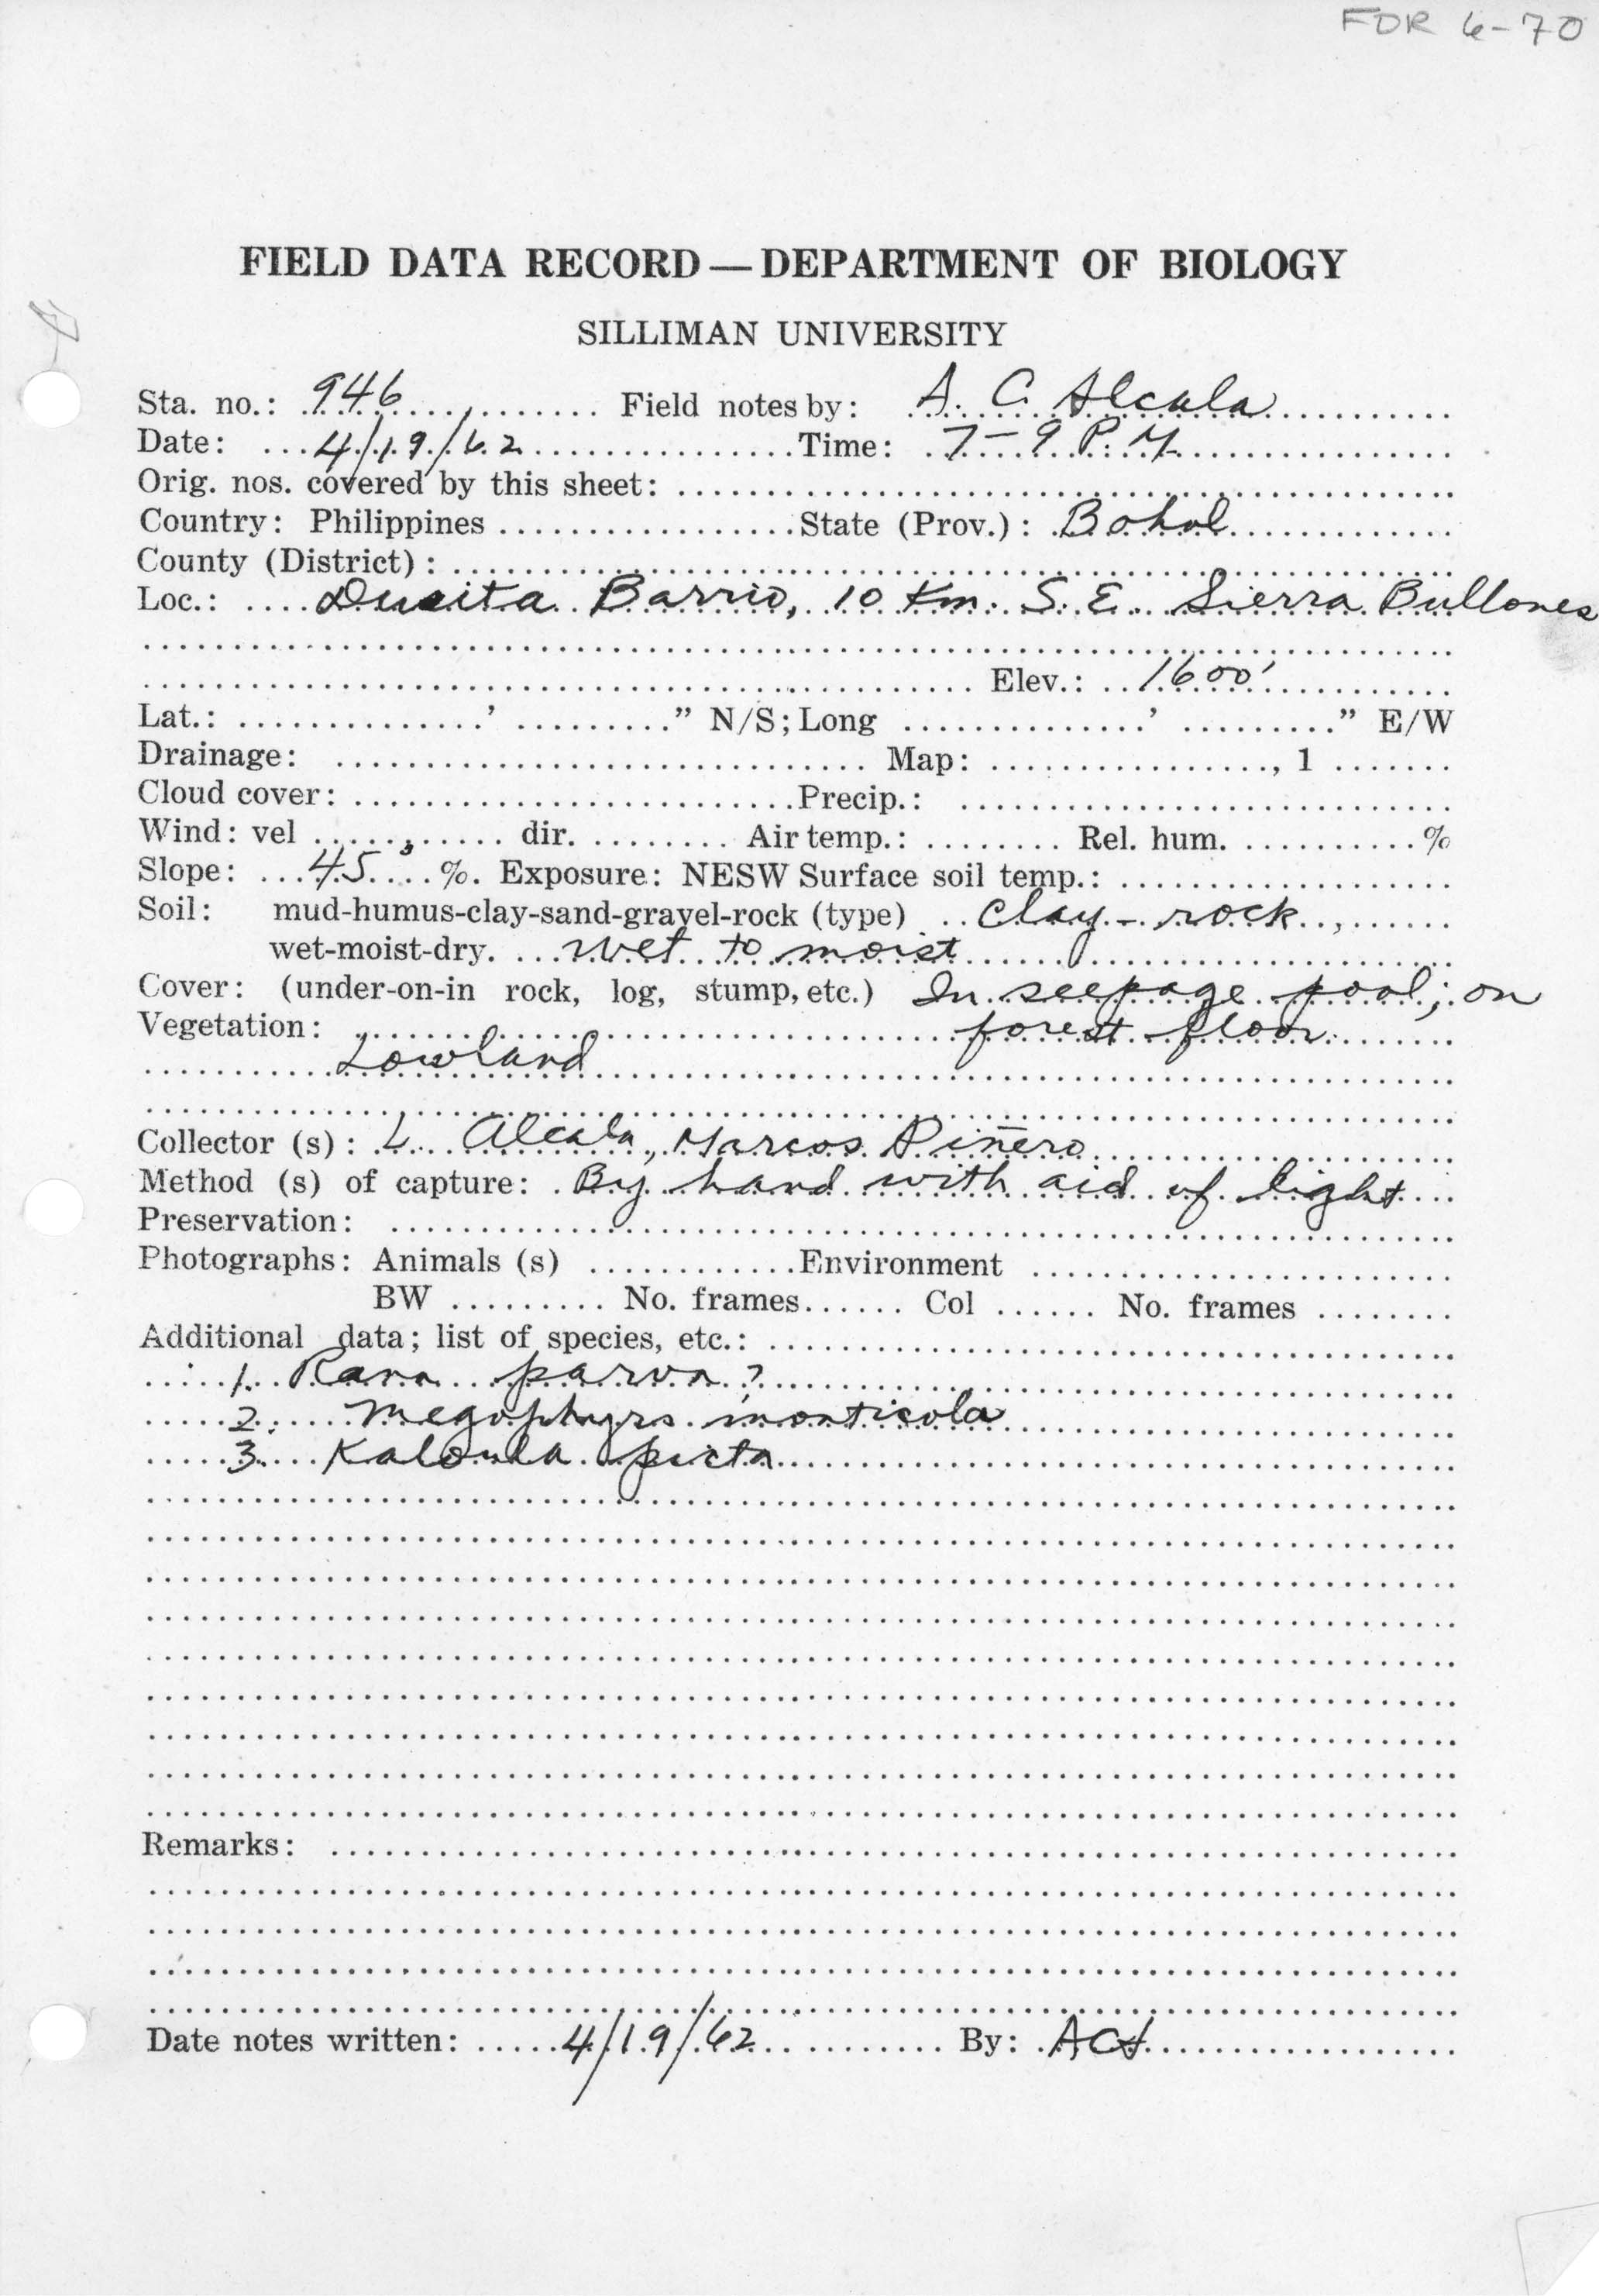 FDR 6-70
FIELD DATA RECORD — DEPARTMENT OF BIOLOGY
SILLIMAN UNIVERSITY
Sta. no.: 946 Field notes by: A. C. Alcala
Date: 4/19/62 Time: 7-9 P.M.
Orig. nos. covered by this sheet:
Country: Philippines State (Prov.): Bohol
County (District):
Loc.: Dusita Barrio, 10 Km. S. E. Sierra Bullones
Elev.: 1600'
Lat.: ' " N/S; Long ' " E/W
Drainage: Map: , 1
Cloud cover: Precip.:
Wind: vel dir. Air temp.: Rel. hum. %
Slope: 45 %. Exposure: NESW Surface soil temp.:
Soil: mud-humus-clay-sand-gravel-rock (type) clay - rock
wet-moist-dry. wet to moist
Cover: (under-on-in rock, log, stump, etc.) In seepage pool; on
Vegetation: forest floor
Lowland
Collector (s): L. Alcala, Marcos Piñero
Method (s) of capture: By hand with aid of light
Preservation:
Photographs: Animals (s) Environment
BW No. frames Col No. frames
Additional data; list of species, etc.:
1. Rana parva?
2. Megophyrs monticola
3. Kaloula picta
Remarks:
Date notes written: 4/19/62 By: ACA